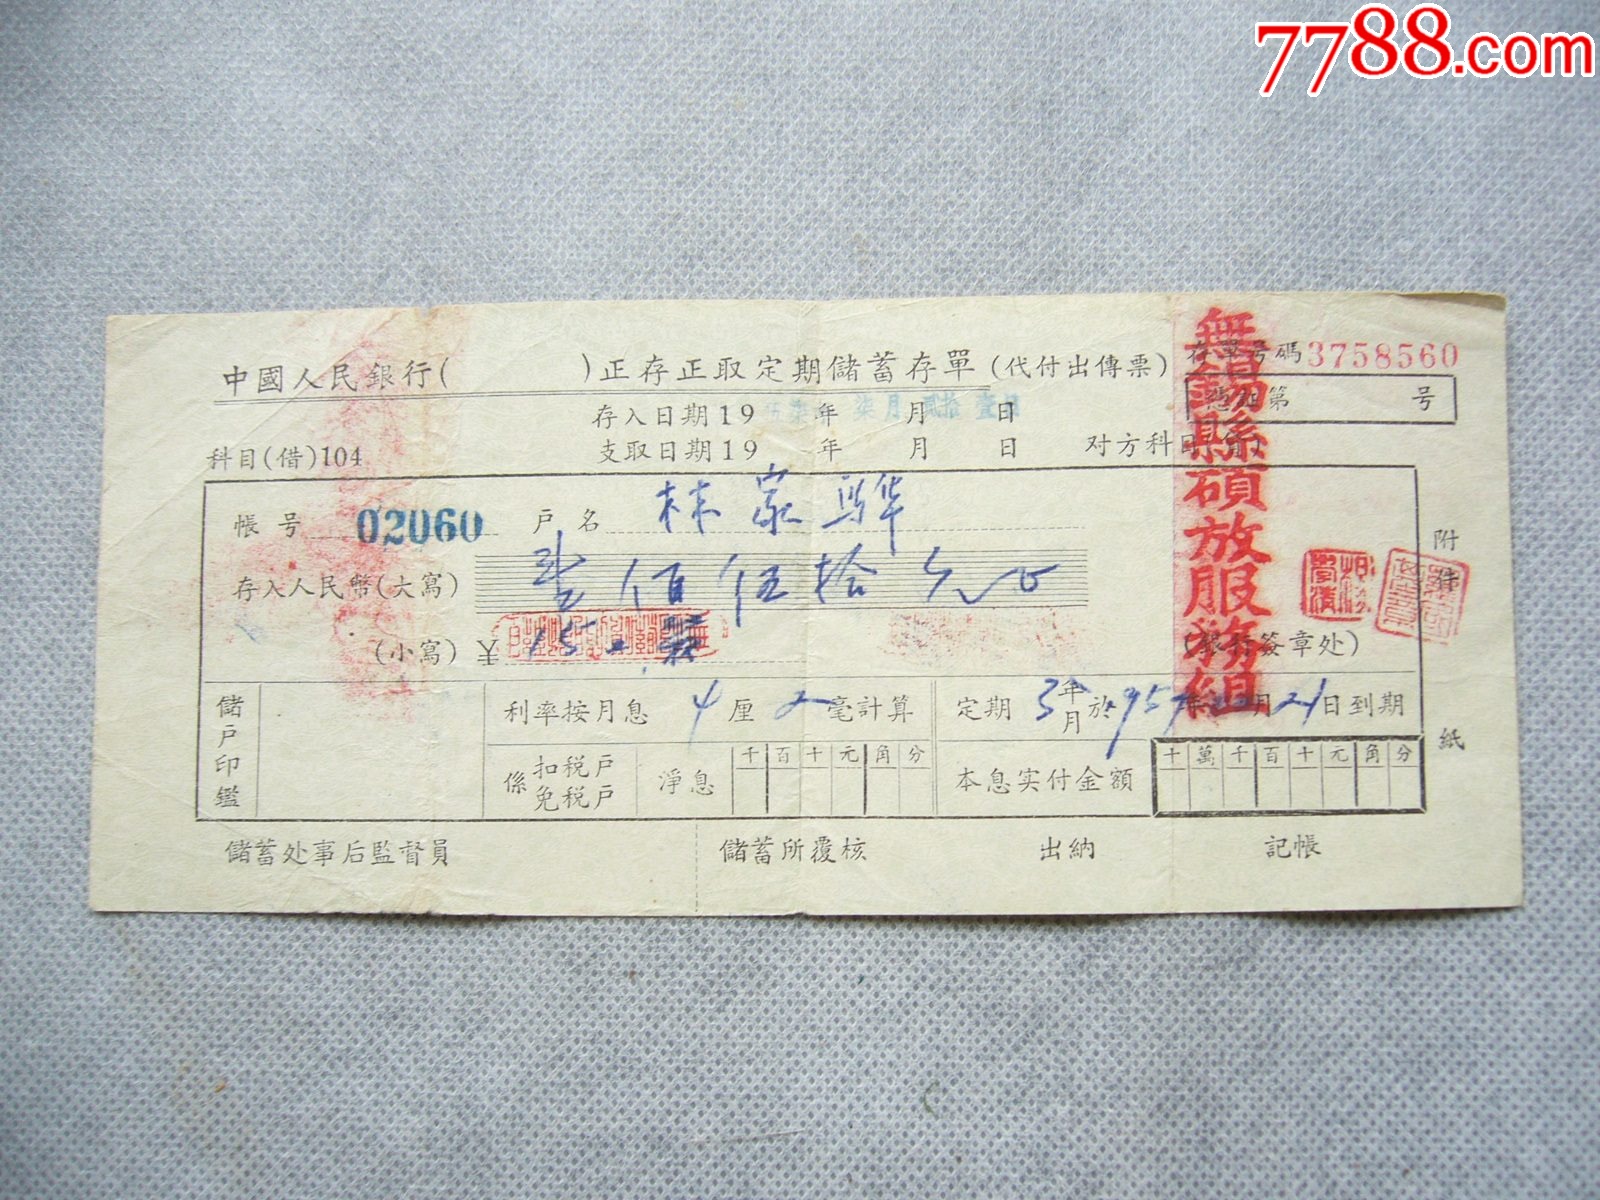 7788.com
中國人民銀行( )正存正取定期儲蓄存單(代付出傳票)
存單号碼3758560
存入日期19 伍柒年 柒月 貳拾壹日
第 号
科目(借)104
支取日期19 年 月 日 对方科目
無錫縣碩放服務組
帳号 02060 戶名 林家骅
存入人民幣(大寫) 壹佰伍拾元正
(小寫)
(銀行簽章处)
附件
紙
儲戶印鑑
利率按月息 4 厘 2 毫計算
定期 3 年月 於 1957年 月21日到期
係 扣稅戶 免稅戶 淨息 千百十元角分
本息实付金額 十萬千百十元角分
儲蓄处事后監督員 儲蓄所覆核 出納 記帳